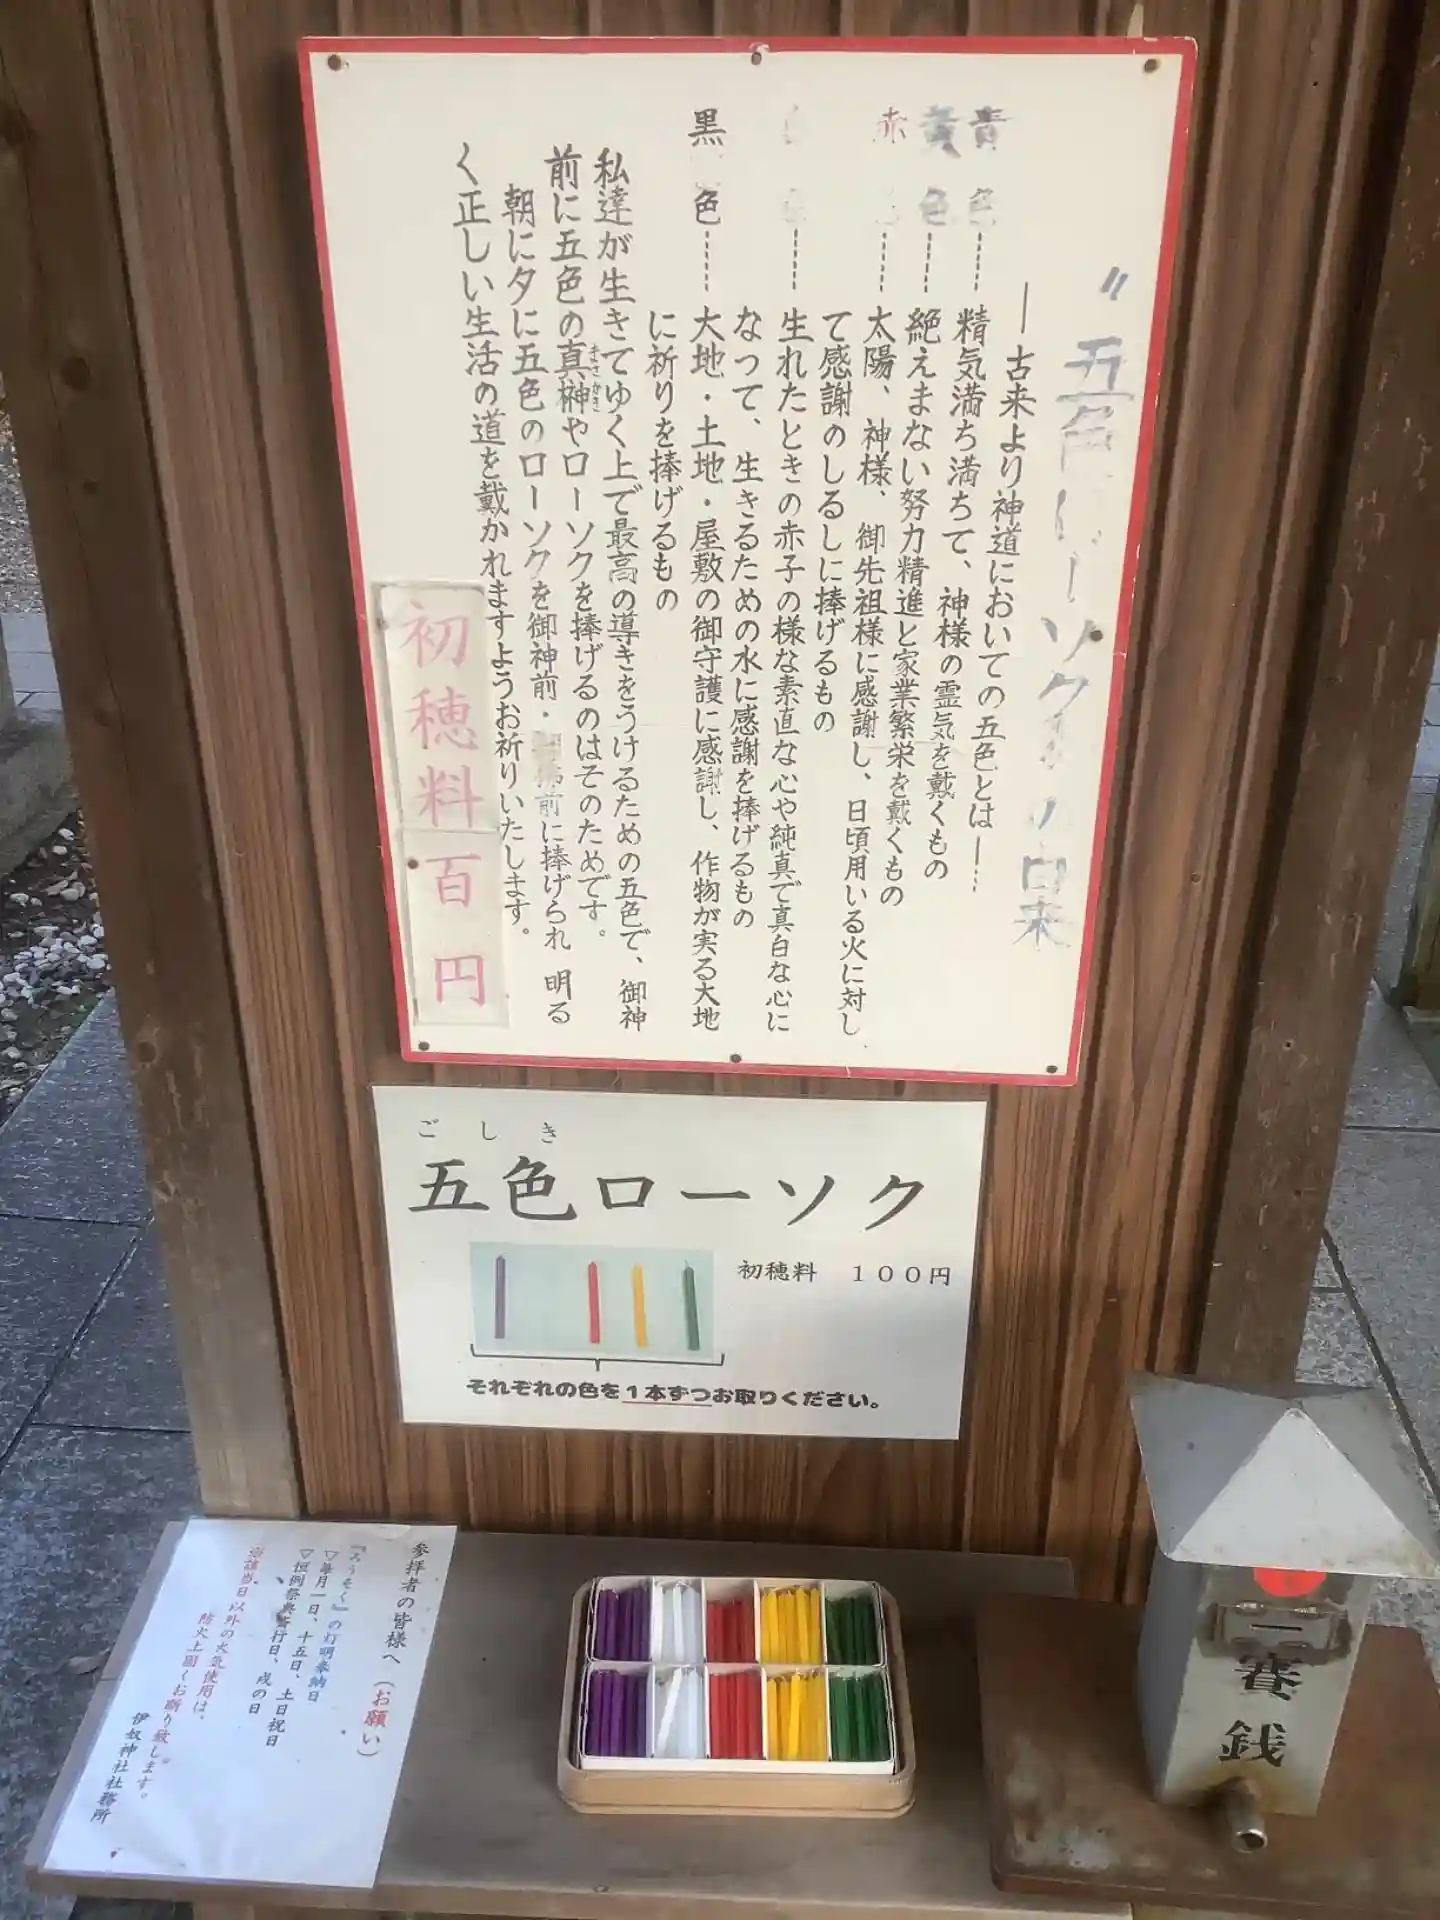 〝五色ローソク〟の由来
―古来より神道においての五色とは―
青色……精気満ち満ちて、神様の霊気を戴くもの
黄色……絶えまない努力精進と家業繁栄を戴くもの
赤色……太陽、神様、御先祖様に感謝し、日頃用いる火に対し
て感謝のしるしに捧げるもの
色……生れたときの赤子の様な素直な心や純真で真白な心に
なつて、生きるための水に感謝を捧げるもの
黒色……大地・土地・屋敷の御守護に感謝し、作物が実る大地
に祈りを捧げるもの
私達が生きてゆく上で最高の導きをうけるための五色で、御神
前に五色の真榊やローソクを捧げるのはそのためです。
まさかき
朝に夕に五色のローソクを御神前・御佛前に捧げられ 明る
く正しい生活の道を戴かれますようお祈りいたします。
初穂料百円
ごしき
五色ローソク
初穂料 100円
それぞれの色を1本ずつお取りください。
参拝者の皆様へ(お願い)
『ろうそく』の灯明奉納日
▽毎月一日、十五日、土日祝日
▽恒例祭典斎行日、戌の日
当日以外の火気使用は、
防火上固くお断り致します。
伊奴神社社務所
賽銭